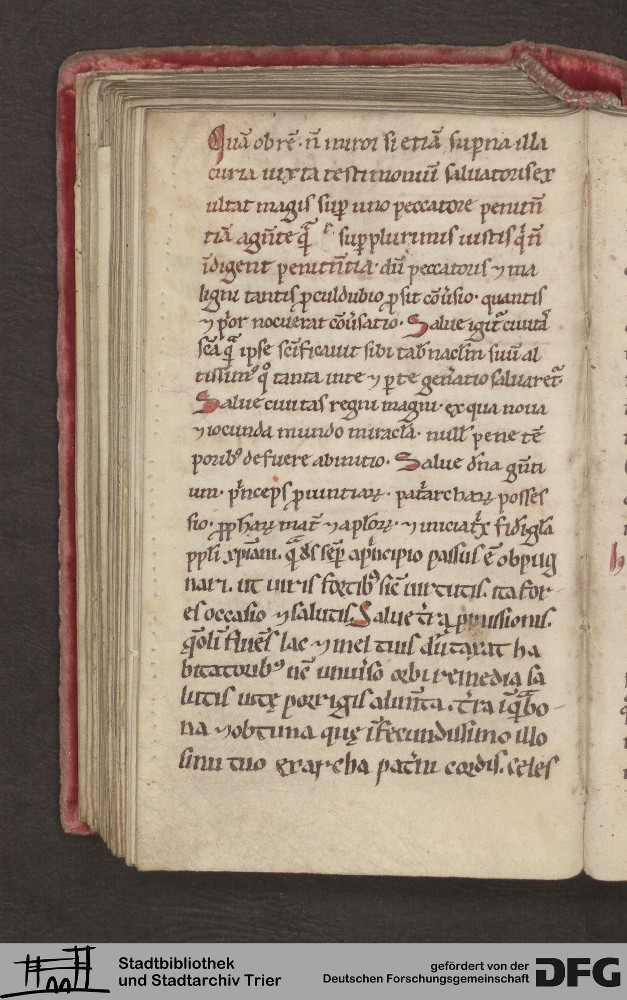 Quā ob rē · n̄ miror si etiā supna illa
curia iuxta testimoniū saluatoris ex
ultat magis sup uno peccatore penitn̄
tiā agn̄te q̄ā sup plurimis iustis q̇ n̄
īdigent penitn̄tia · dū peccatoris ⁊ ma
ligni tantis pculdubio psit cōūsio · quantis
⁊ ṗor nocuerat cōūsatio · Salue igit̄ ciuitā
scā q̄ā ipse scīficauit sibi tab̄naclm̄ suū al
tissim⁹ q̊ tanta in te ⁊ p te gen̄atio saluaret̄ ·
Salue ciuitas regni magni · ex qua noua
⁊ iocunda mundo miracl̄a · null pene tē
porib⁹ defuere ab initio · Salue dn̄a gn̄ti
um · ṗnceps puintiaꝝ · pat̄archaꝝ posses
sio · pphaꝝ mat̄ ⁊ aplōꝝ · ⁊ iniciat̄x fidi gl̄a
ppli xp̄iani · q̄ā ds̄ semp a ṗncipio passus ē obpug
nari · ut uiris fortib⁹ sic̄ uirtutis · ita for
es occasio ⁊ salutis. Salue t̄ra pmissionis.
q̄ oli fluēs lac ⁊ mel tuis dūtaxat ha
bitatorib⁹ nc̄ uniuso orbi remedia sa
lutis uitę porrigis alim̄ta. t̄ra īquā bo
na ⁊ obtima quę ī fecundissimo illo
sinu tuo ex archa pat̄ni cordis. celes
Stadtbibliothek
und Stadtarchiv Trier
gefördert von der
Deutschen Forschungsgemeinschaft
DFG